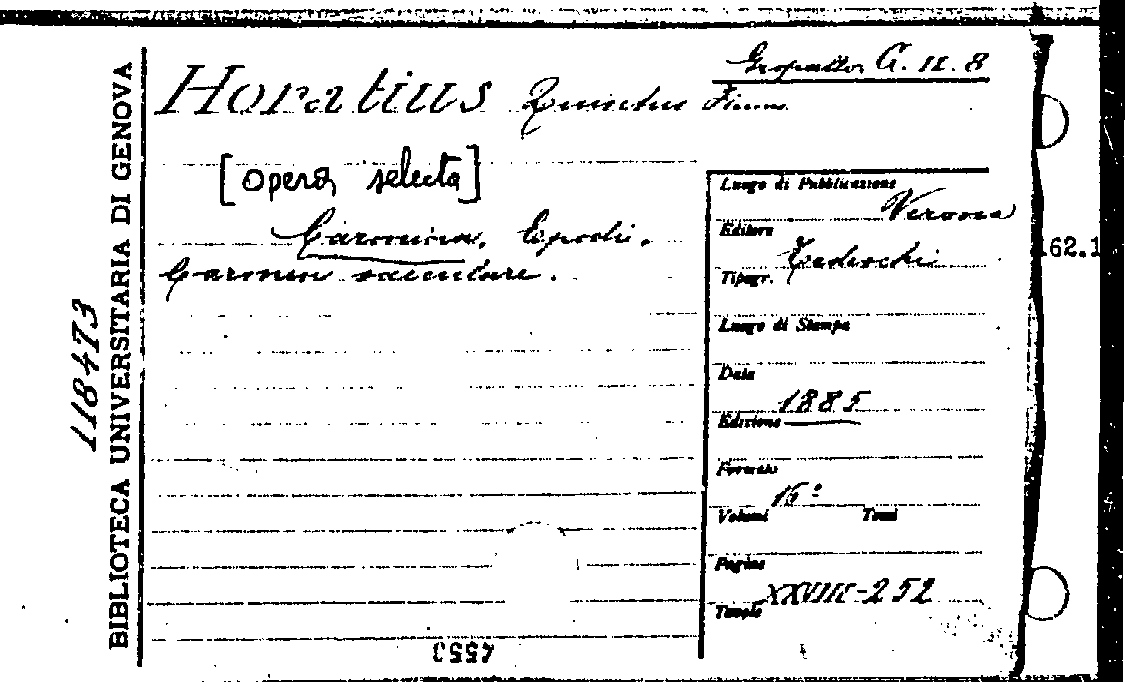 Gropallo, A. II. 8
Horatius Quinctus Flaccus
[Opera selecta]
Carmina, Epodi,
Carmen saeculare.
Luogo di Pubblicazione
Verona
Editore
Tedeschi
Tipogr.
Luogo di Stampa
Data
1885
Edizione
Formato
16º
Volumi Tomi
Pagine
XXVIII-252
Tavole
BIBLIOTECA UNIVERSITARIA DI GENOVA
118473
62.1
4553